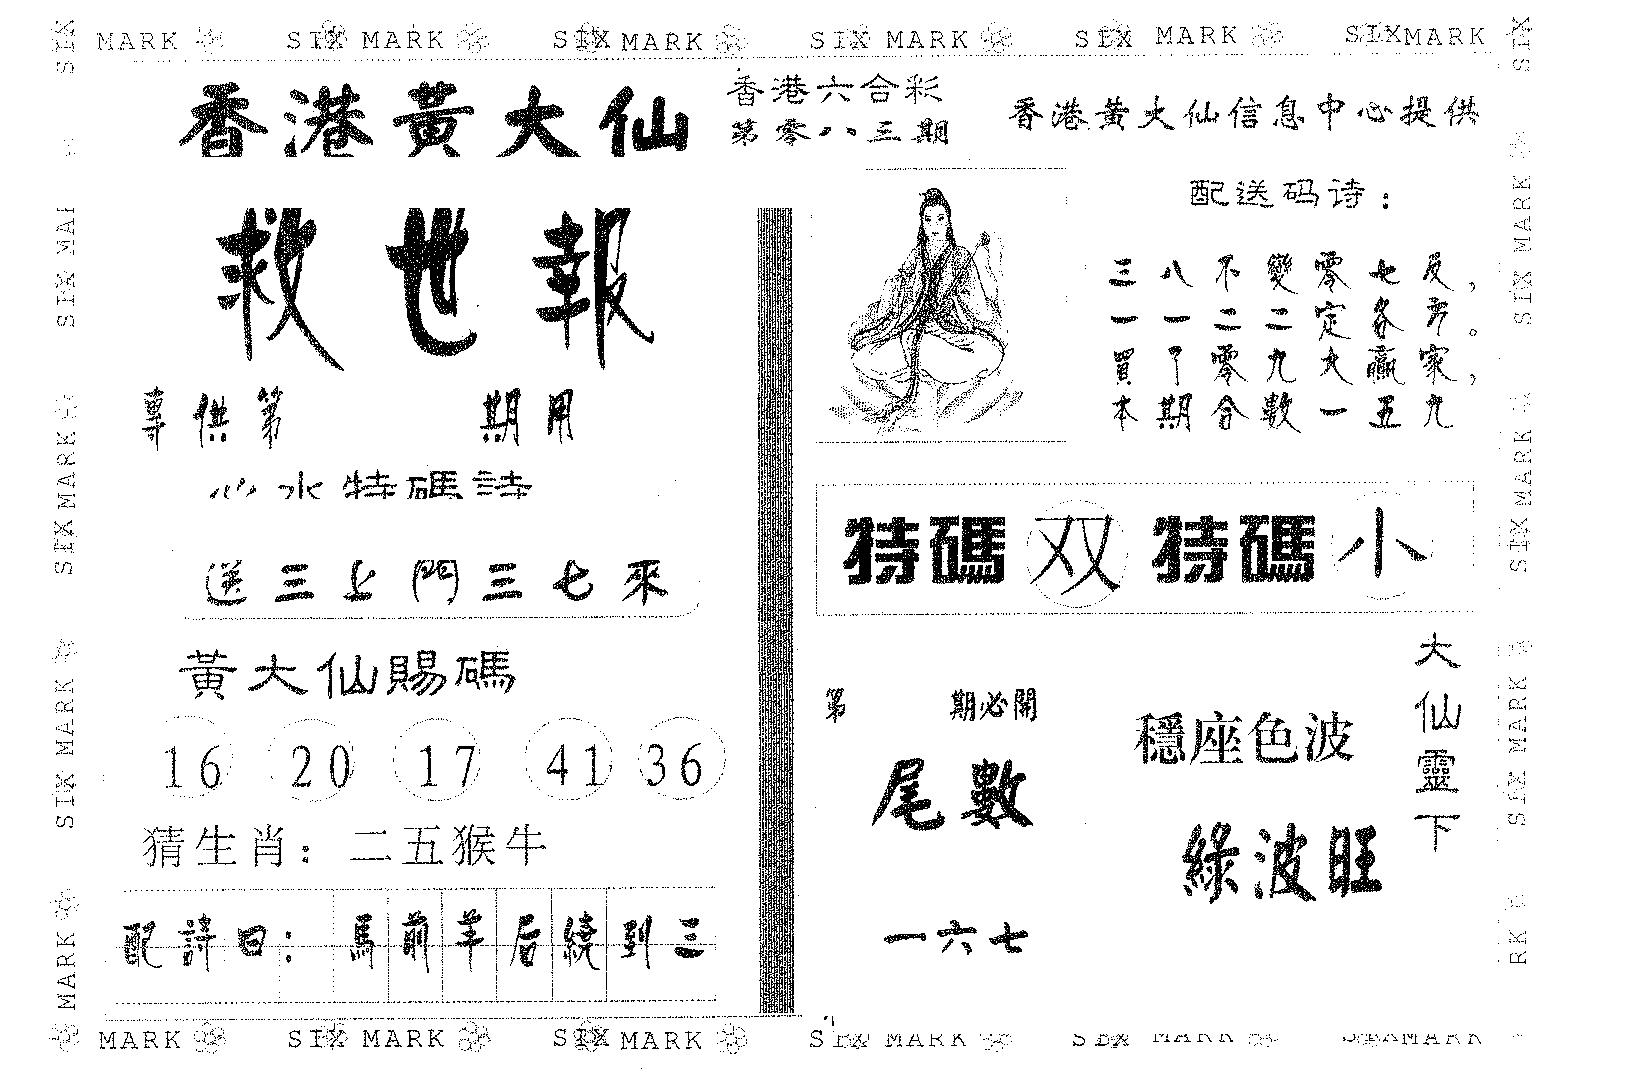 MARK SIX MARK SIX MARK SIX MARK SIX MARK SIX MARK
香港黃大仙
救世報
專供第 期用
心水特碼詩
送三上門三七來
黃大仙賜碼
16 20 17 41 36
猜生肖：二五猴牛
配詩曰：馬前羊后繞到三
香港六合彩
第零八三期
香港黃大仙信息中心提供
配送码诗：
三八不變零七反，
一一二二定各方。
買了零九大贏家，
本期合數一五九
特碼双 特碼小
第 期必開
尾數
一六七
穩座色波
綠波旺
大仙靈下
SIX MARK SIX MARK SIX MARK MARK
SIX MARK SIX MARK SIX MARK
MARK SIX MARK SIX MARK SIX MARK